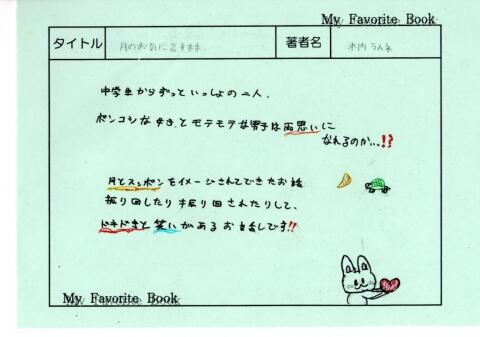 My Favorite Book
タイトル 月のお気に召すまま 著者名 木内ラムネ
中学生からずっといっしょの二人。
ポンコツな ゆき、とモテモテな男子は両思いに
なれるのか…!?
月とスッポンをイメージされてできたお話
振り回したり振り回されたりして、
ドキドキと笑いがあるお話しです!!
My Favorite Book